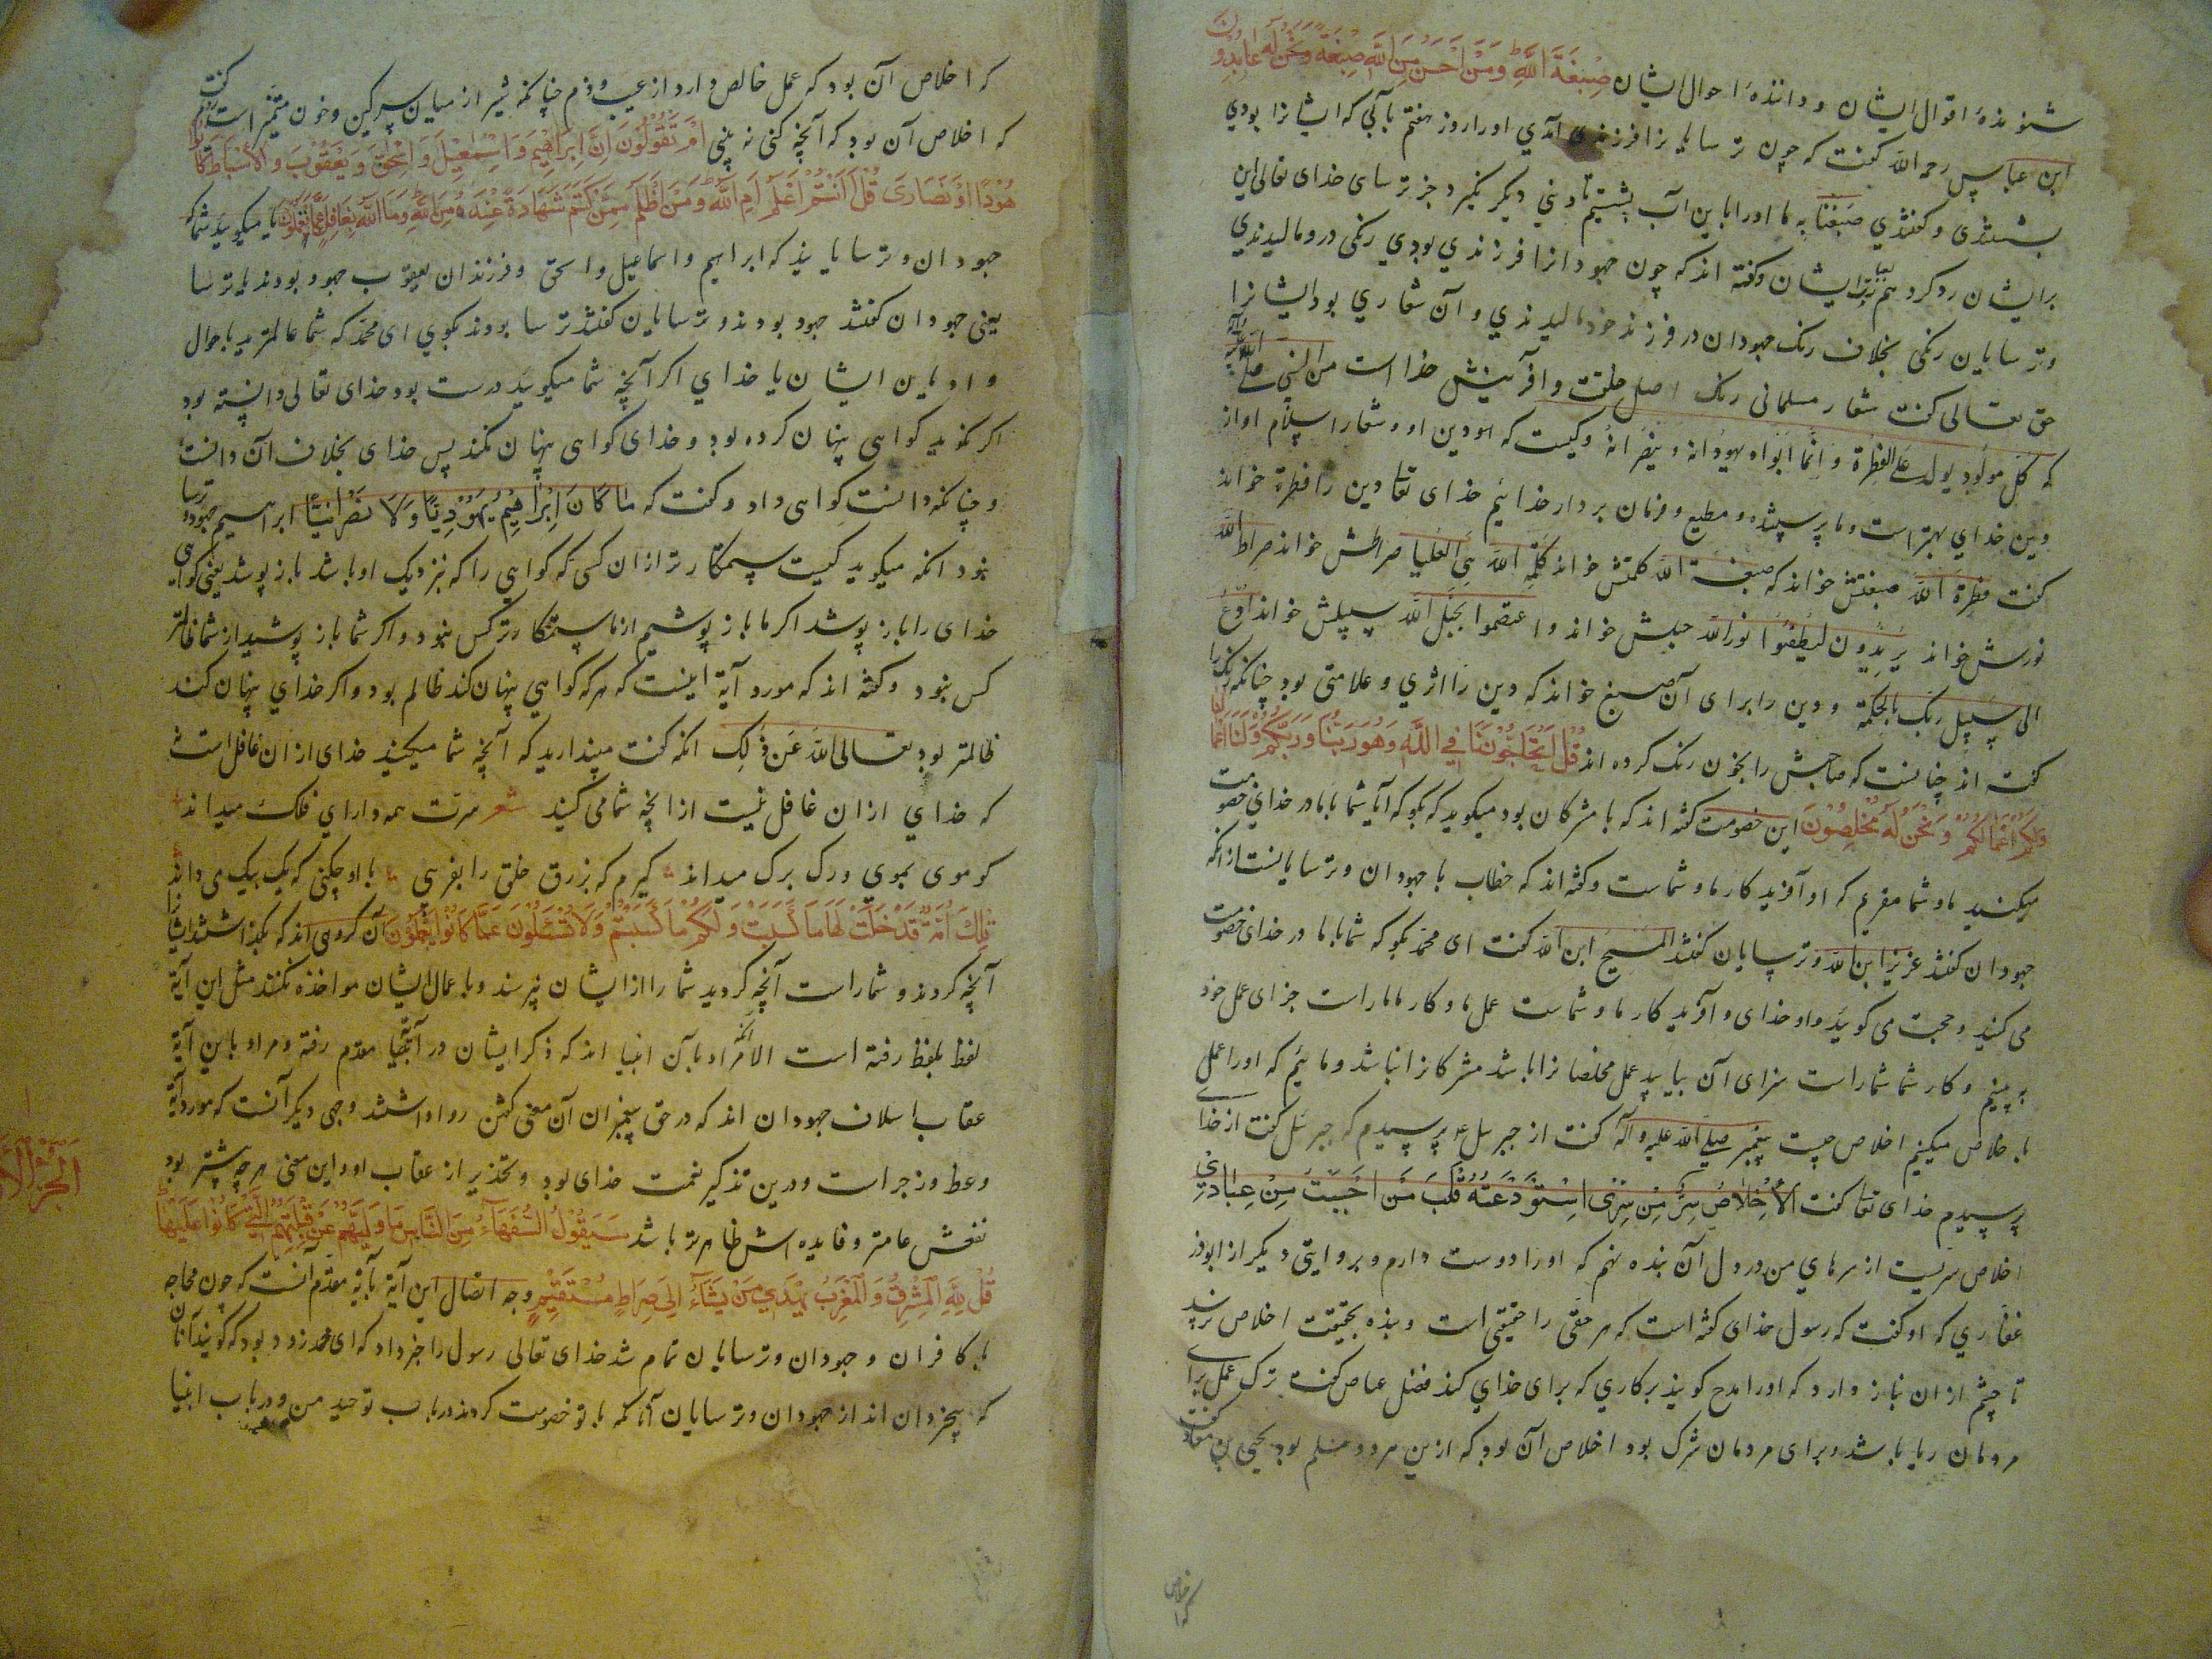 شنونده اقوال ایشان و داننده احوال ایشان صِبْغَةَ اللَّهِ وَمَنْ اَحْسَنُ مِنَ اللَّهِ صِبْغَةً وَنَحْنُ لَهُ عَابِدُونَ
ابن عباس رحمه الله کفت که چون ترسایانرا فرزندی آمدی اورا روز هفتم بآبی که ایشانرا بودی
بشستندی و کفتندی صبغناه به ما اورا باین آب بشستیم تا دینی دیکر نکیرد جز ترسای خدای تعالی این
برایشان رد کرد ایشان وکفته اند که چون جهودانرا فرزندی بودی رنکی درو مالیدندی
وترسایان رنکی بخلاف رنک جهودان در فرزند خود مالیدندی و آن شعاری بود ایشانرا
حق تعالی کفت شعار مسلمانی رنک اصل خلقت و آفرینش خدا است من النبی صلی الله علیه وآله
که کل مولود یولد علی الفطرة و انما ابواه یهودانه و ینصرانه وکیست که او دین او و شعار اسلام او از
دین خدای بهتر است و ما پرستنده و مطیع و فرمان بردار خدائیم خدای تعا دین را فطرة خواند
کفت فطرة الله صبغتش خواند که صبغة الله کلمتش خواند کلمة الله هی العلیا صراطش خواند صراط الله
نورش خواند یریدون لیطفئوا نور الله حبلش خواند و اعتصموا بحبل الله سبیلش خواند ادع
الی سبیل ربک بالحکمة و دین را برای آن صبغ خواند که دین را اثری و علامتی بود چنانکه رنک را
کفته اند چنانست که صاحبش را بخون رنک کرده اند قُلْ اَتُحَاجُّونَنَا فِي اللَّهِ وَهُوَ رَبُّنَا وَرَبُّكُمْ وَلَنَا اَعْمَالُنَا
وَلَكُمْ اَعْمَالُكُمْ وَنَحْنُ لَهُ مُخْلِصُونَ این خصومت کفته اند که با مشرکان بود میکوید که بکو که آیا شما با ما در خدای خصومت
میکنید ما و شما مقریم که او آفرید کار ما و شماست وکفته اند که خطاب با جهودان و ترسایانست از آنکه
جهودان کفتند عزیر ابن الله و ترسایان کفتند المسیح ابن الله کفت ای محمد بکو که شما با ما در خدای خصومت
می کنید و حجت می کویید و او خدای و آفرید کار ما و شماست عمل ما و کار ما ما راست جزای عمل خود
بینیم و کار شما شما راست سزای آن بیابید عمل مخلصانرا باشد مشرکانرا نباشد و مائیم که اورا عمل
باخلاص میکنیم اخلاص چیست پیغمبر صلی الله علیه وآله کفت از جبرئیل پرسیدم که جبرئیل کفت از خدا
پرسیدم خدای تعا کفت الاخلاص سر من سری استودعته قلب من احببت من عبادی
اخلاص سریست از سرهای من در دل آن بنده نهم که اورا دوست دارم و بروایتی دیکر از ابوذر
غفاری که او کفت که رسول خدای کفته است که هر حقی را حقیقتی است و بنده بحقیقت اخلاص نرسد
تا چشم از ان نیاز دارد که اورا مدح کویند برکاری که برای خدای کند فضل عیاض کفت ترک عمل برای
مردمان ریا باشد و برای مردمان شرک بود اخلاص آن بود که ازین هر دو مسلم بود یحیی بن معاذ کفت
که اخلاص آن بود که عمل خالص دارد از عیب و ذم چنانکه شیر از میان سرکین و خون متمیز است
که اخلاص آن بود که آنچه کنی نه بینی اَمْ تَقُولُونَ اِنَّ اِبْرَاهِيمَ وَاِسْمٰعِيلَ وَاِسْحٰقَ وَيَعْقُوبَ وَالْاَسْبَاطَ كَانُوا
هُودًا اَوْ نَصَارَى قُلْ ءَاَنْتُمْ اَعْلَمُ اَمِ اللَّهُ وَمَنْ اَظْلَمُ مِمَّنْ كَتَمَ شَهَادَةً عِنْدَهُ مِنَ اللَّهِ وَمَا اللَّهُ بِغَافِلٍ عَمَّا تَعْمَلُونَ یا میکویید شما که
جهودان و ترسایانید که ابراهیم و اسماعیل و اسحق و فرزندان یعقوب جهود بودند یا ترسا
یعنی جهودان کفتند جهود بودند و ترسایان کفتند ترسا بودند بکوی ای محمد که شما عالمترید باحوال
و ادیان ایشان یا خدای اکر آنچه شما میکویید درست بود خدای تعالی دانسته بود
اکر نکوید کواهی پنهان کرده بود و خدای کواهی پنهان نکند پس خدای بخلاف آن دانست
و چنانکه دانست کواهی داد و کفت که ما کان ابراهیم یهودیا ولا نصرانیا ابراهیم جهود و ترسا
نبود آنکه میکوید کیست ستمکارتر از ان کسی که کواهی را که نزدیک او باشد باز پوشد یعنی کواهی
خدای را باز پوشد اکر ما باز پوشیم از ما ستمکارتر کس نبود و اکر شما باز پوشید از شما ظالمتر
کس نبود و کفته اند که مورد آیة اینست که هر که کواهی پنهان کند ظالم بود و اکر خدای پنهان کند
ظالمتر بود تعالی الله عن ذلک آنکه کفت مپندارید که آنچه شما میکنید خدای از ان غافل است
که خدای از ان غافل نیست از آنچه شما می کنید شعر سرت همه دارای فلک میداند
کو موی بموی و رک برک میداند کیرم که بزرق خلق را بفریبی با او چکنی که یک بیک می داند
تِلْكَ اُمَّةٌ قَدْ خَلَتْ لَهَا مَا كَسَبَتْ وَلَكُمْ مَا كَسَبْتُمْ وَلَا تُسْئَلُونَ عَمَّا كَانُوا يَعْمَلُونَ آن کروهی اند که بکذاشتند ایشانرا
آنچه کردند و شما راست آنچه کردید شما را از ایشان نپرسند و باعمال ایشان مواخذه نکنند مثل این آیة
لفظ بلفظ رفته است الا آنکه مراد بآن انبیا اند که ذکر ایشان در آیتها مقدم رفته و مراد باین آیة
عقاب اسلاف جهودان اند که در حق پیغمبران آن معنی کفتن روا داشتند وجهی دیکر آنست که مورد آیة
وعظ و زجر است و درین تذکیر نعمت خدای بود و تحذیر از عقاب او و این معنی هر چه بیشتر بود
نفعش عامتر و فایده اش ظاهرتر باشد سَيَقُولُ السُّفَهَاءُ مِنَ النَّاسِ مَا وَلّٰيهُمْ عَنْ قِبْلَتِهِمُ الَّتِي كَانُوا عَلَيْهَا
قُلْ لِلَّهِ الْمَشْرِقُ وَالْمَغْرِبُ يَهْدِي مَنْ يَشَاءُ اِلَى صِرَاطٍ مُسْتَقِيمٍ وجه اتصال این آیة بآیة مقدم آنست که چون محاجه
با کافران و جهودان و ترسایان تمام شد خدای تعالی رسول را خبر داد که ای محمد زود بود که کویند آنان
که بیخردان اند از جهودان و ترسایان آنانکه با تو خصومت کردند در باب توحید من و در باب انبیا